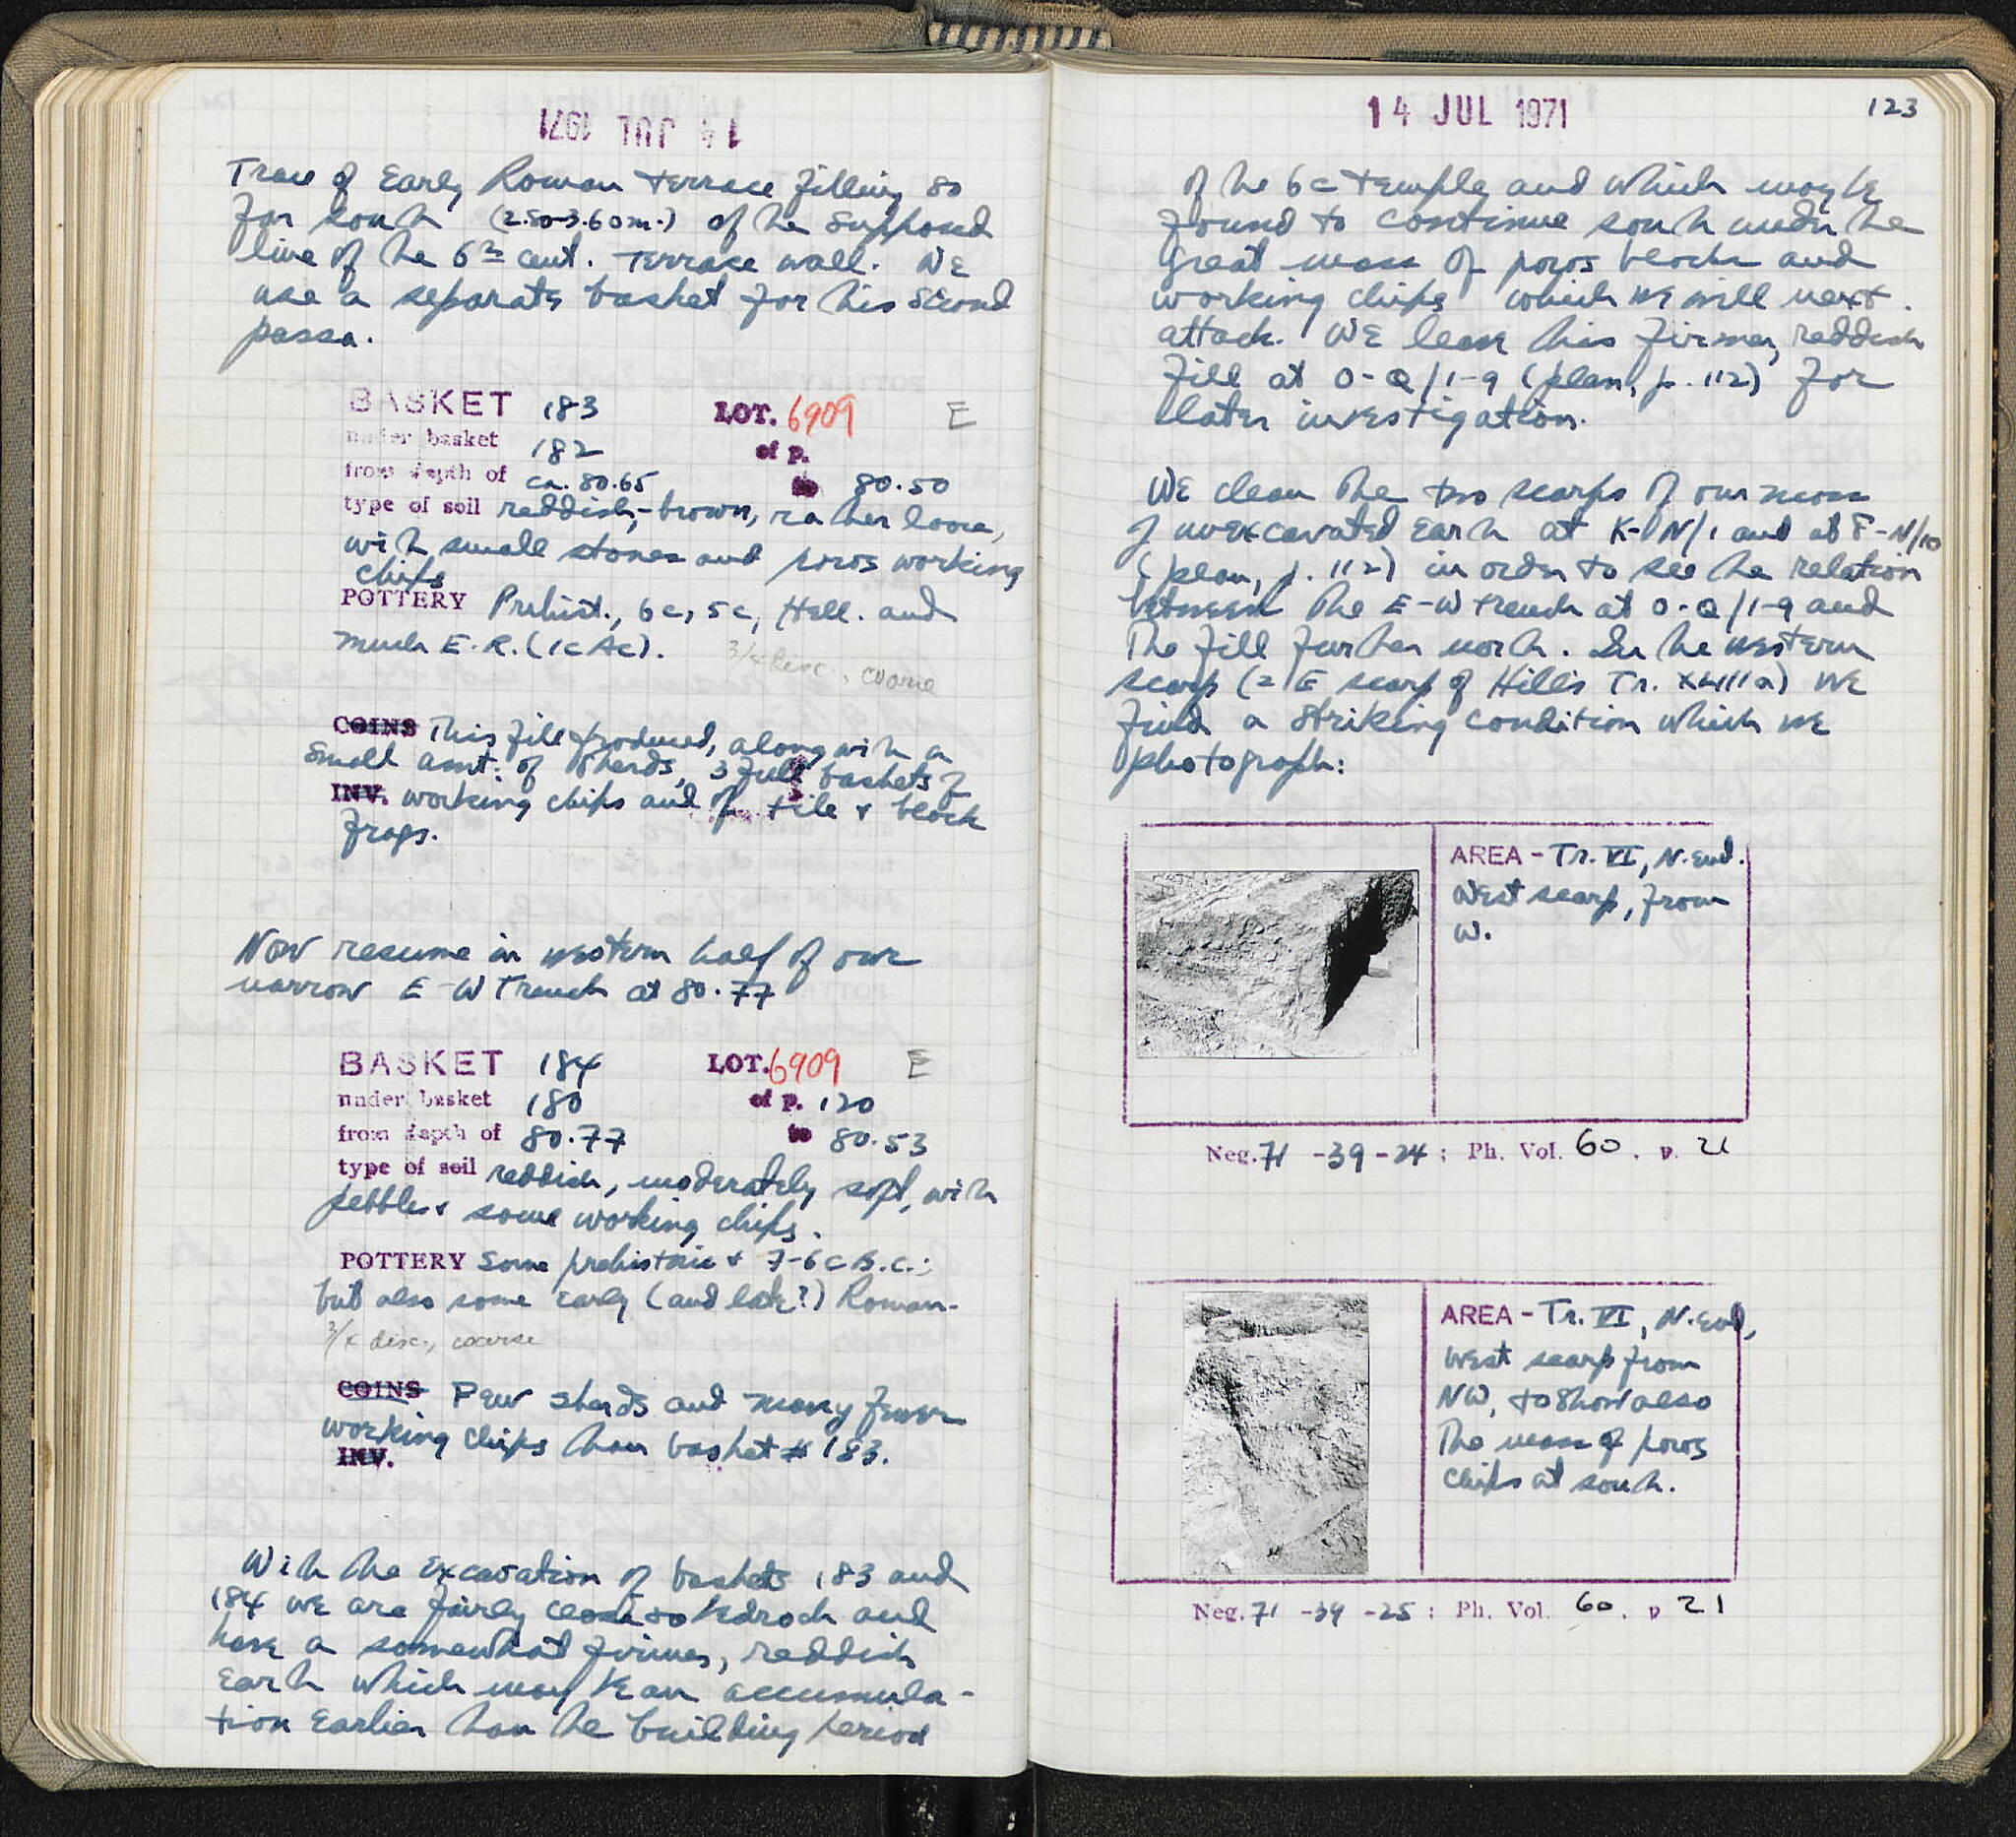 14 JUL 1971
Trace of Early Roman terrace filling so
far south (2.50-3.60m.) of the supposed
line of the 6th cent. terrace wall. We
use a separate basket for this second
passa.
BASKET 183 LOT. 6909 E
under basket 182 of p.
from depth of ca. 80.65 to 80.50
type of soil reddish-brown, rather loose,
with small stones and poros working
chips
POTTERY Prehist., 6c, 5c, Hell. and
much E.R. (1c AC).
3/4 disc., coarse
COINS This fill produced, along with a
small amt. of sherds, 3 full baskets of
INV. working chips and of tile & block
frags.
Now resume in western half of our
narrow E-W Trench at 80.77
BASKET 184 LOT. 6909 E
under basket 180 of p. 120
from depth of 80.77 to 80.53
type of soil reddish, moderately soft, with
pebbles & some working chips.
POTTERY Some prehistoric & 7-6c B.C.;
but also some early (and late?) Roman.
3/4 disc., coarse
COINS Few sherds and many fewer
working chips than basket # 183.
INV.
With the excavation of baskets 183 and
184 we are fairly close to bedrock and
have a somewhat firmer, reddish
earth which may be an accumula-
tion earlier than the building period
14 JUL 1971 123
of the 6c temple and which may be
found to continue south under the
great mass of poros blocks and
working chips which we will next
attack. We leave this firmer, reddish
fill at O-Q/1-9 (plan, p. 112) for
later investigation.
We clean the two scarps of our mass
of unexcavated earth at K-N/1 and at F-N/10
(plan, p. 112) in order to see the relation
between the E-W trench at O-Q/1-9 and
the fill further north. In the western
scarp (= E scarp of Hill's Tr. ) we
find a striking condition which we
photograph:
AREA - Tr. VI, N. end.
West scarp, from
W.
Neg. 71 -39 -24 ; Ph. Vol. 60 . p. 21
AREA - Tr. VI, N. end,
West scarp from
NW, to show also
the mass of poros
chips at south.
Neg. 71 -39 -25 ; Ph. Vol. 60 . p 21